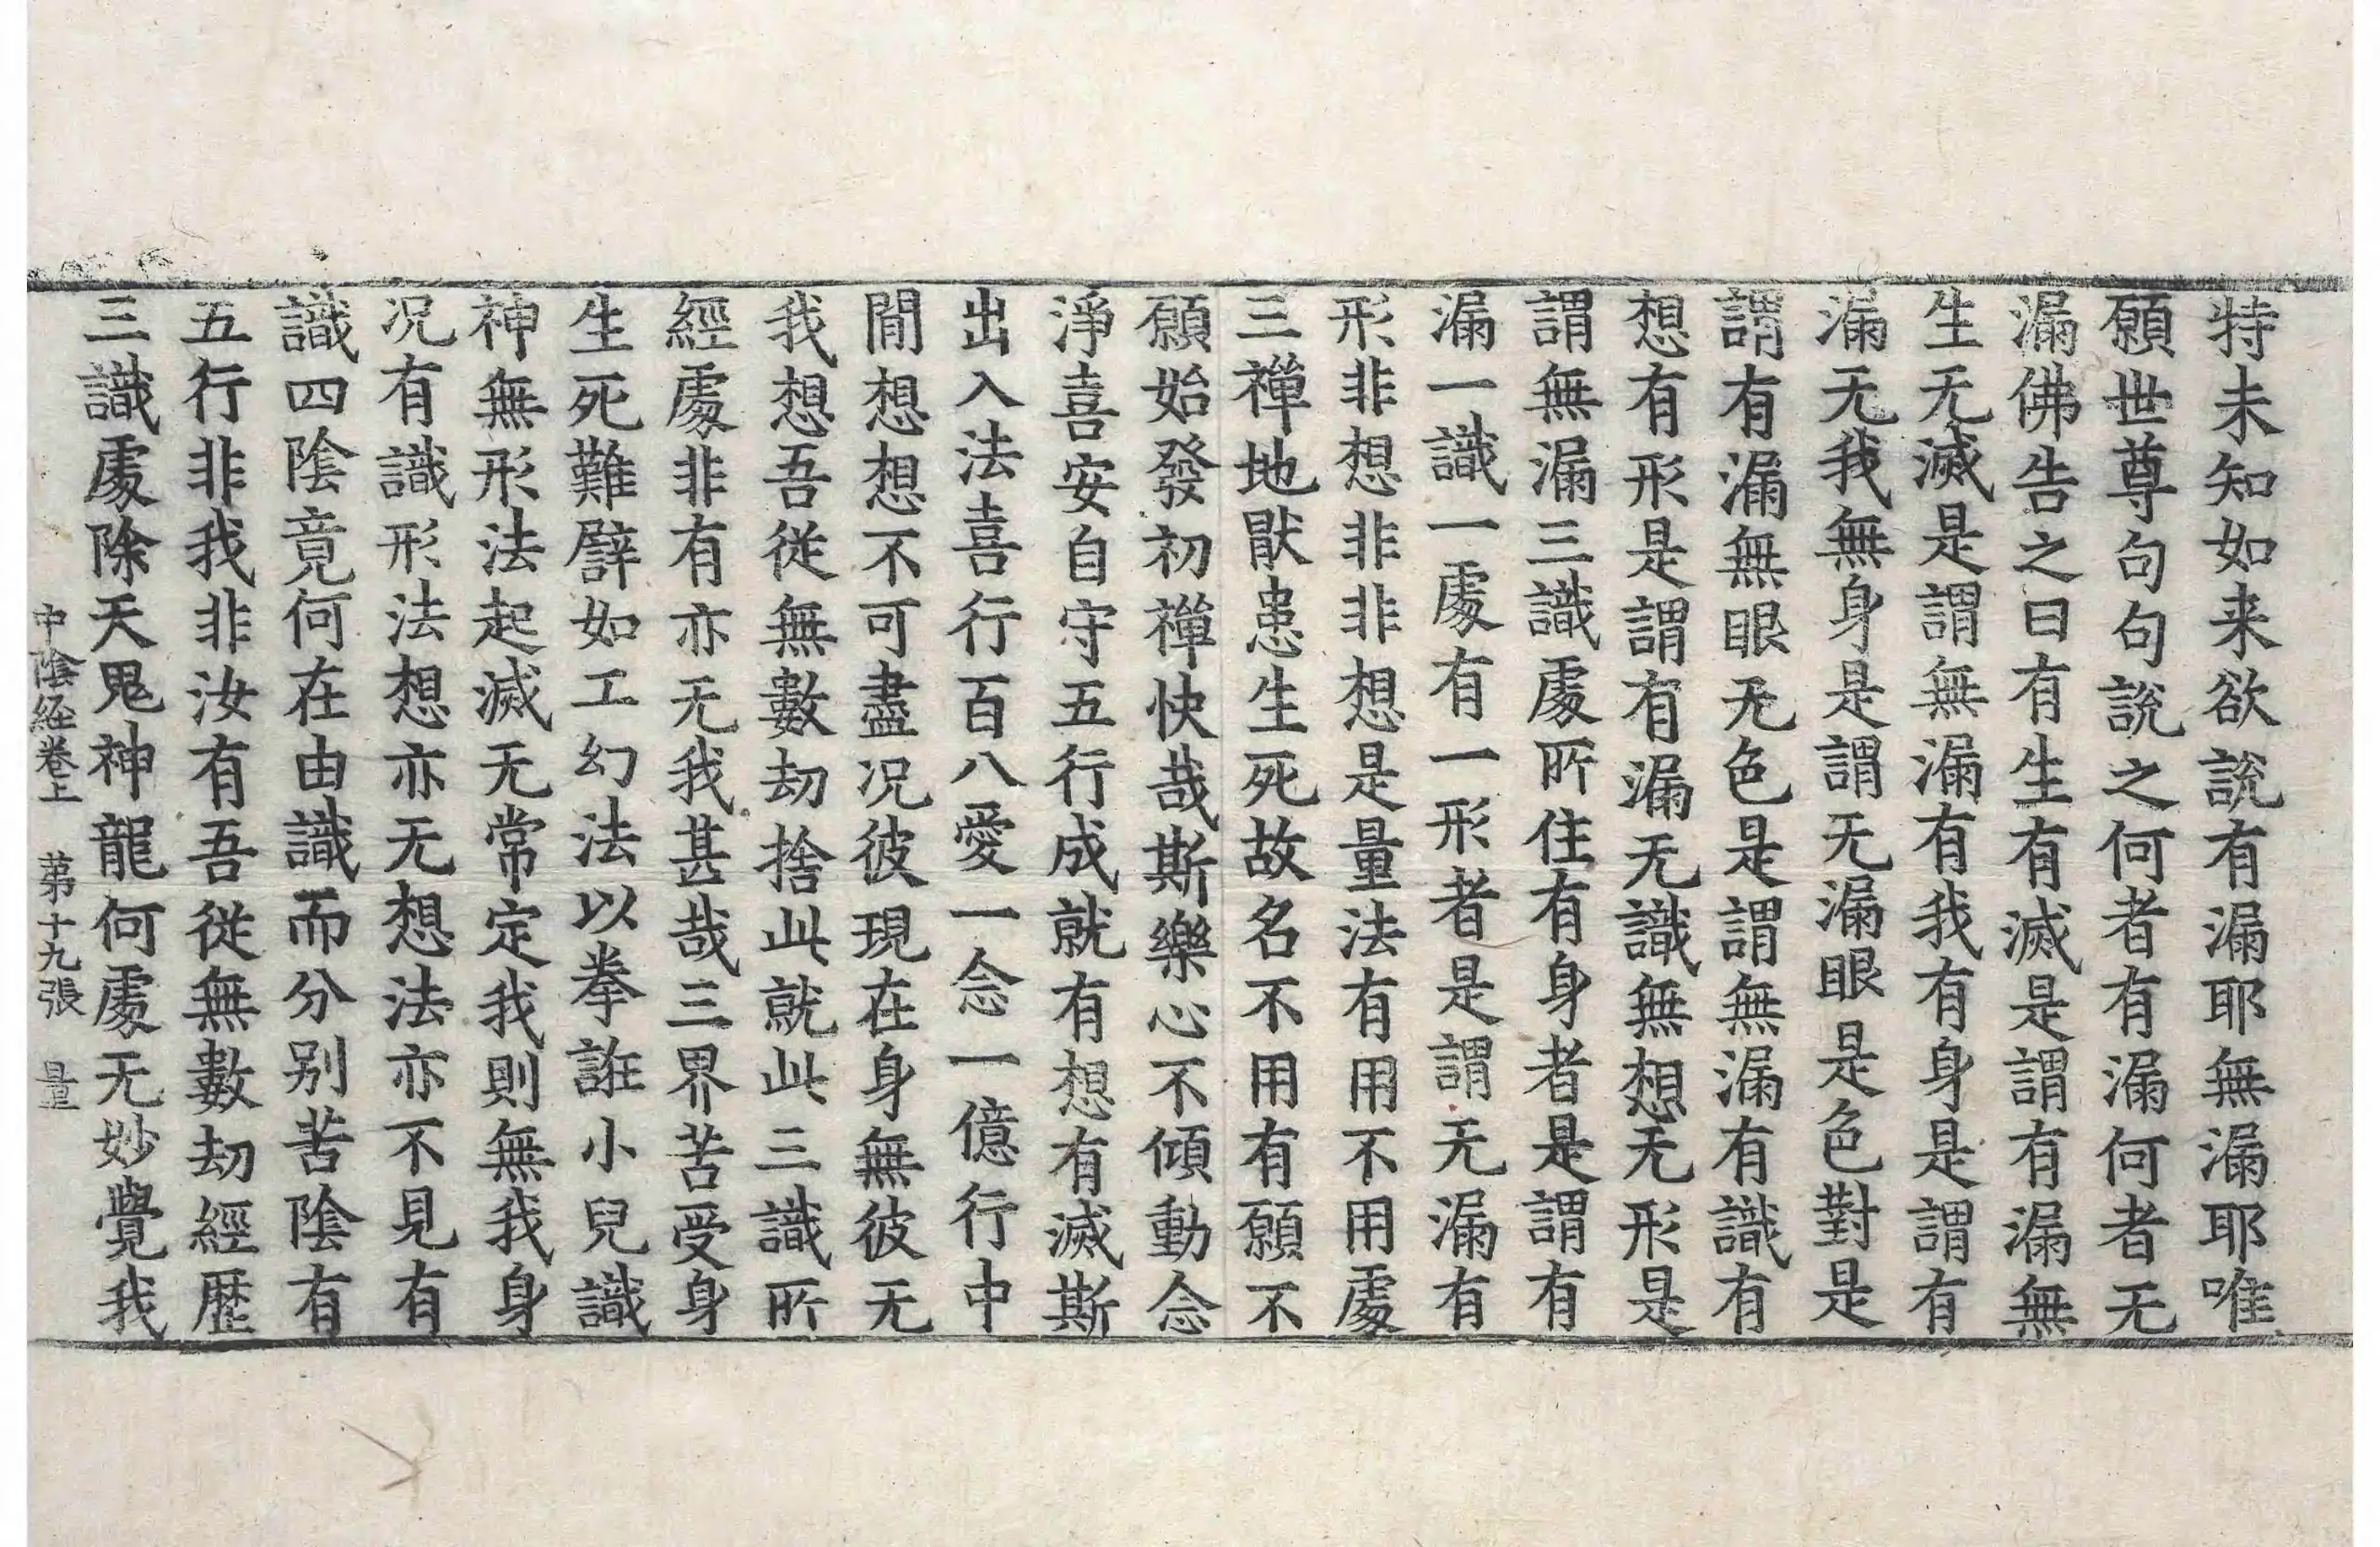 特未知如来欲說有漏耶無漏耶唯
願世尊句句說之何者有漏何者无
漏佛告之曰有生有滅是謂有漏無
生无滅是謂無漏有我有身是謂有
漏无我無身是謂无漏眼是色對是
謂有漏無眼无色是謂無漏有識有
想有形是謂有漏无識無想无形是
謂無漏三識處所住有身者是謂有
漏一識一處有一形者是謂无漏有
形非想非非想是量法有用不用處
三禪地猒患生死故名不用有願不
願始發初禪快哉斯樂心不傾動念
淨喜安自守五行成就有想有滅斯
出入法喜行百八愛一念一億行中
間想想不可盡况彼現在身無彼无
我想吾從無數劫捨此就此三識所
經處非有亦无我甚哉三界苦受身
生死難譬如工幻法以拳誑小兒識
神無形法起滅无常定我則無我身
况有識形法想亦无想法亦不見有
識四陰竟何在由識而分別苦陰有
五行非我非汝有吾從無數劫經歷
三識處除天鬼神龍何處无妙覺我
中陰経卷上 第十九張 量